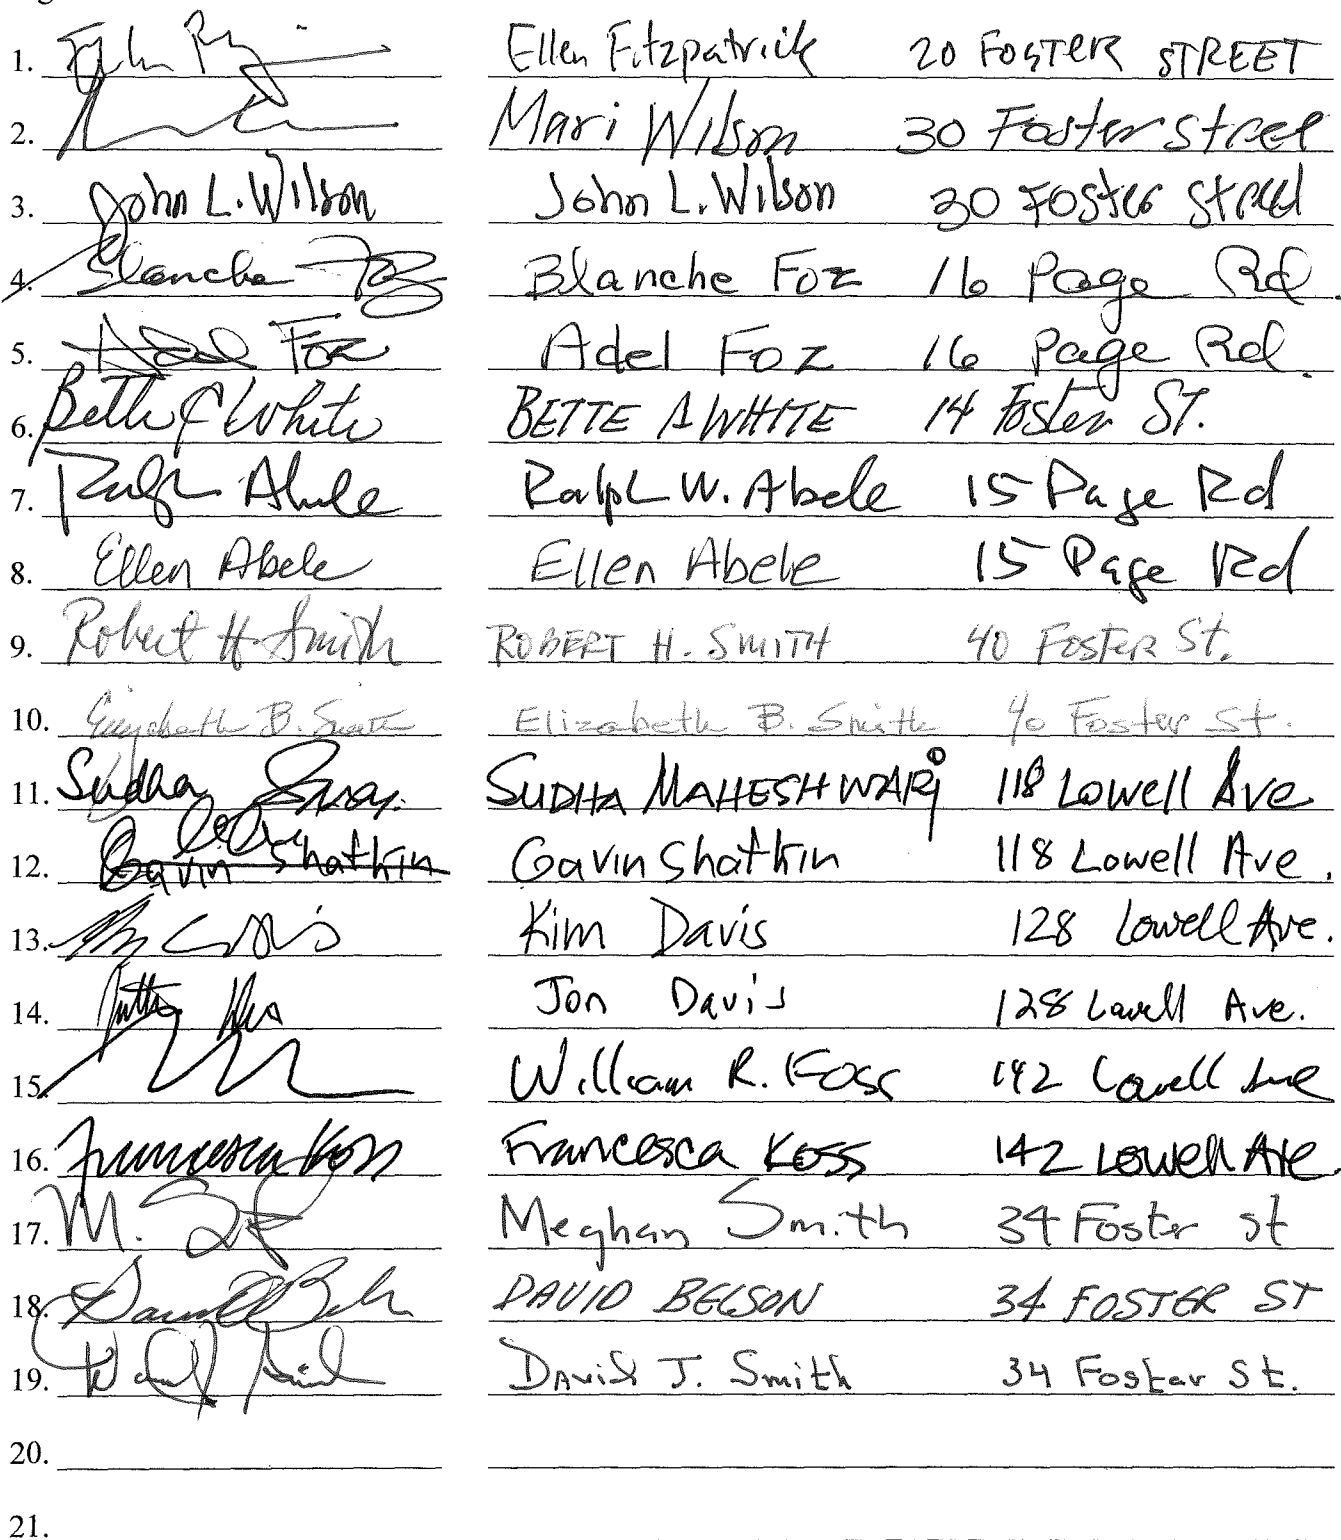 1. Ellen Fitzpatrick 20 FOSTER STREET
2. Mari Wilson 30 Foster Street
3. John L. Wilson John L. Wilson 30 Foster Street
4. Blanche Foz Blanche Foz 16 Page Rd.
5. Adel Foz Adel Foz 16 Page Rd.
6. Bette A White BETTE A WHITE 14 Foster St.
7. Ralph Abele Ralph W. Abele 15 Page Rd
8. Ellen Abele Ellen Abele 15 Page Rd
9. Robert H Smith ROBERT H. SMITH 40 FOSTER St.
10. Elizabeth B. Smith Elizabeth B. Smith 40 Foster St.
11. Sudha SUDHA MAHESHWARI 118 Lowell Ave
12. Gavin Shatkin Gavin Shatkin 118 Lowell Ave.
13. Kim Davis 128 Lowell Ave.
14. Jon Davis 128 Lowell Ave.
15. William R. Koss 142 Lowell Ave
16. Francesca Koss Francesca Koss 142 Lowell Ave.
17. M. Meghan Smith 34 Foster St
18. DAVID BELSON 34 FOSTER ST
19. David J. Smith 34 Foster St.
20.
21.